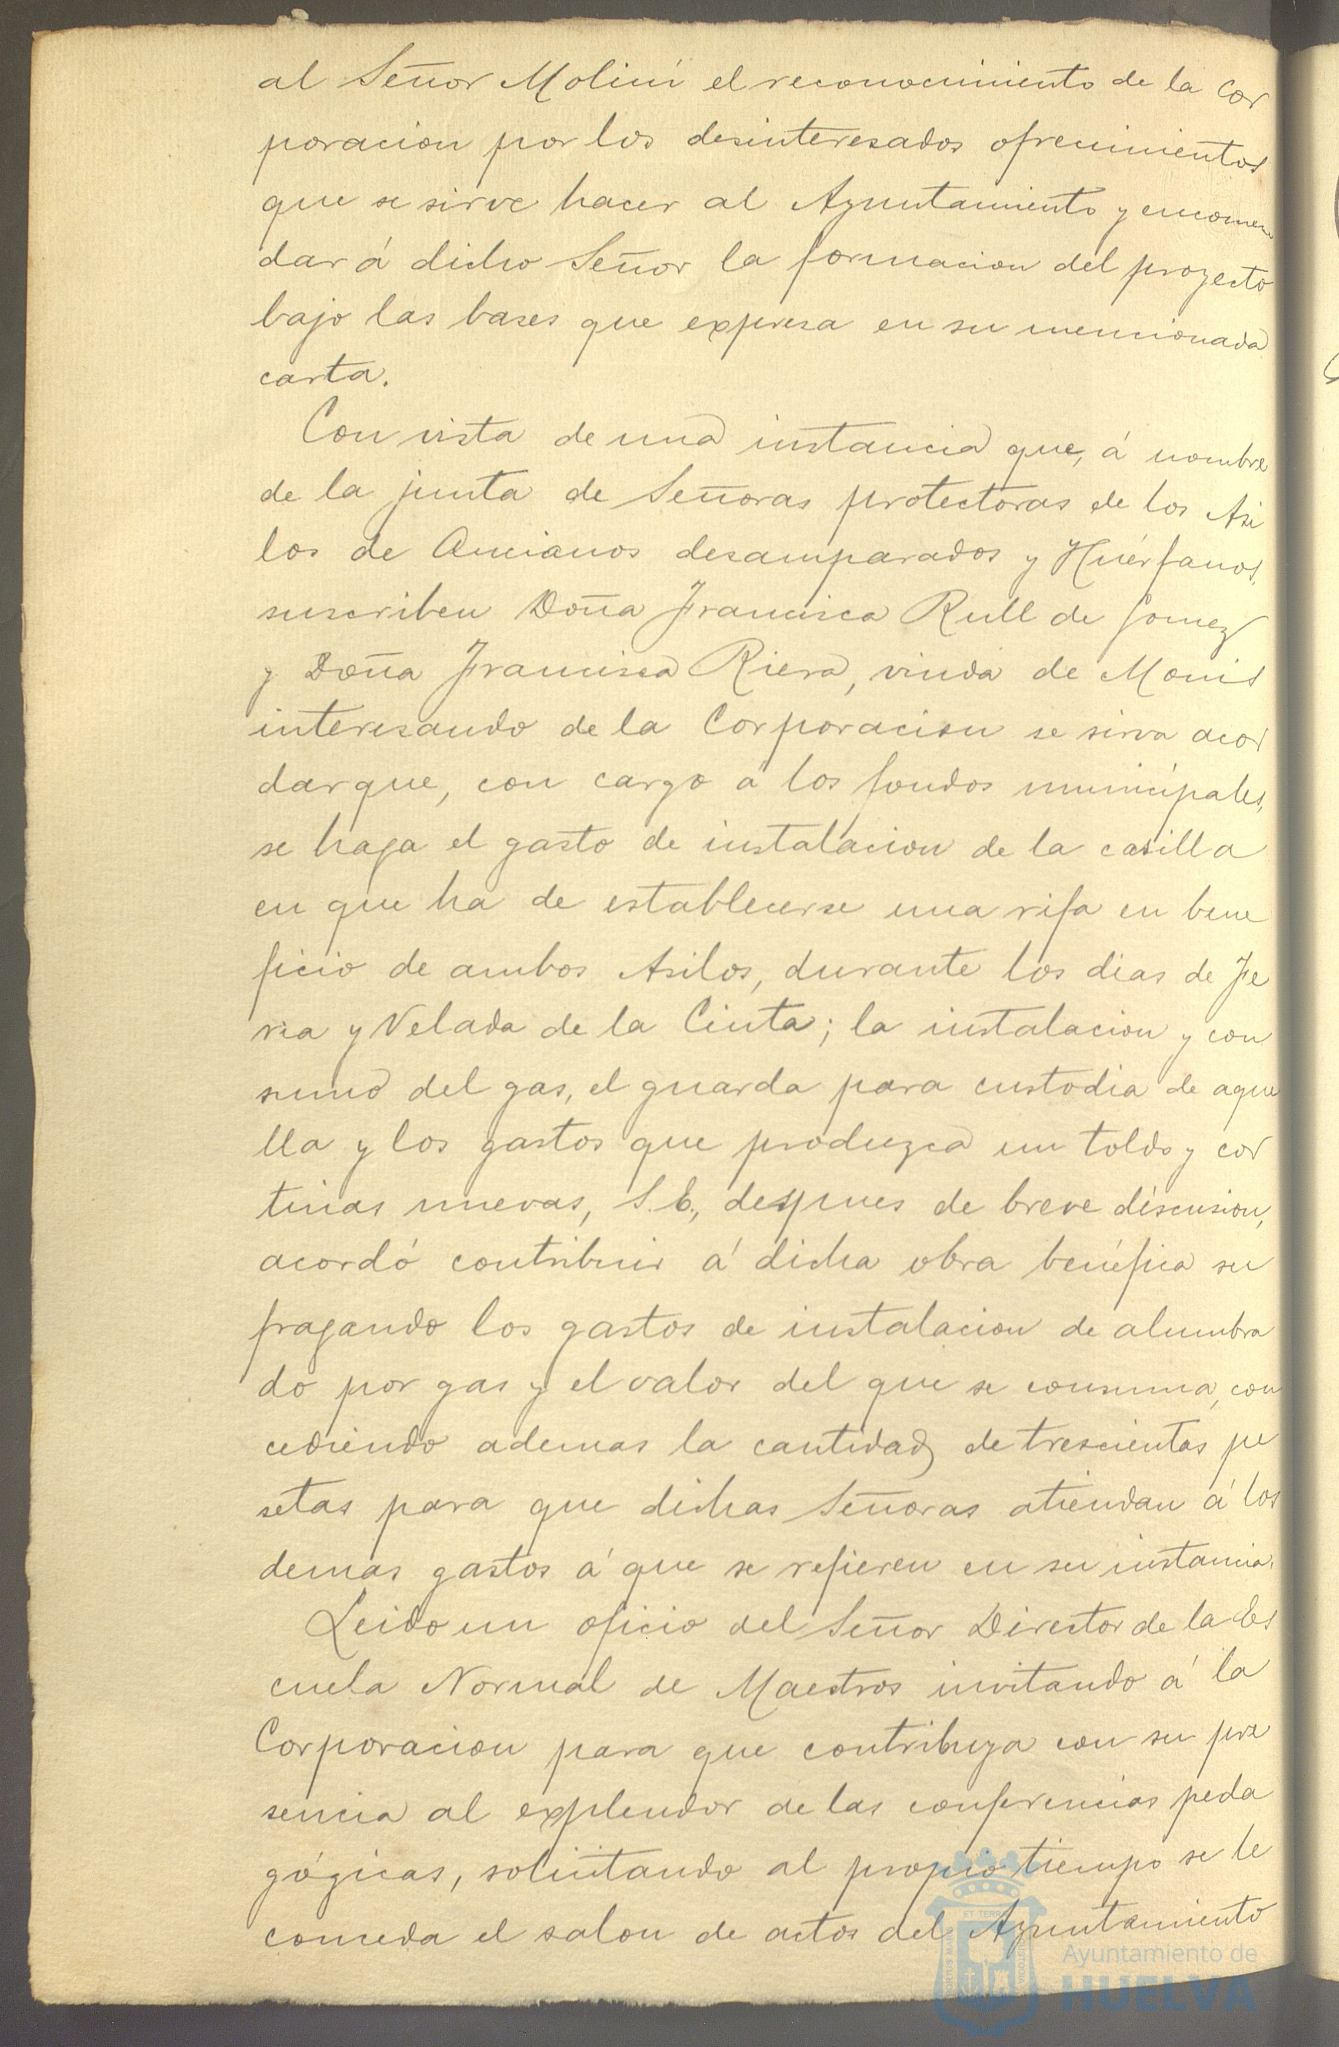 al Señor Molini el reconocimiento de la Cor
poracion por los desinteresados ofrecimientos
que se sirve hacer al Ayuntamiento y encomen
dar á dicho Señor la formacion del proyecto
bajo las bases que expresa en su mencionada
carta.
Con vista de una instancia que, á nombre
de la junta de Señoras protectoras de los Asi
los de Ancianos desamparados y Huérfanos,
suscriben Doña Francisca Rull de Gomez
y Doña Francisca Riera, viuda de Monis
interesando de la Corporacion se sirva acor
dar que, con cargo á los fondos municipales,
se haga el gasto de instalacion de la casilla
en que ha de establecerse una rifa en bene
ficio de ambos Asilos, durante los dias de Fe
ria y Velada de la Cinta; la instalacion y con
sumo del gas, el guarda para custodia de aque
lla y los gastos que produzca un toldo y cor
tinas nuevas, S. E., despues de breve discusion,
acordó contribuir á dicha obra benéfica su
fragando los gastos de instalacion de alumbra
do por gas y el valor del que se consuma, con
cediendo ademas la cantidad de trescientas pe
setas para que dichas Señoras atiendan á los
demas gastos á que se refieren en su instancia.
Leido un oficio del Señor Director de la Es
cuela Normal de Maestros invitando á la
Corporacion para que contribuya con su pre
sencia al explendor de las conferencias peda
gógicas, solicitando al propio tiempo se le
conceda el salon de actos del Ayuntamiento
Ayuntamiento de
HUELVA